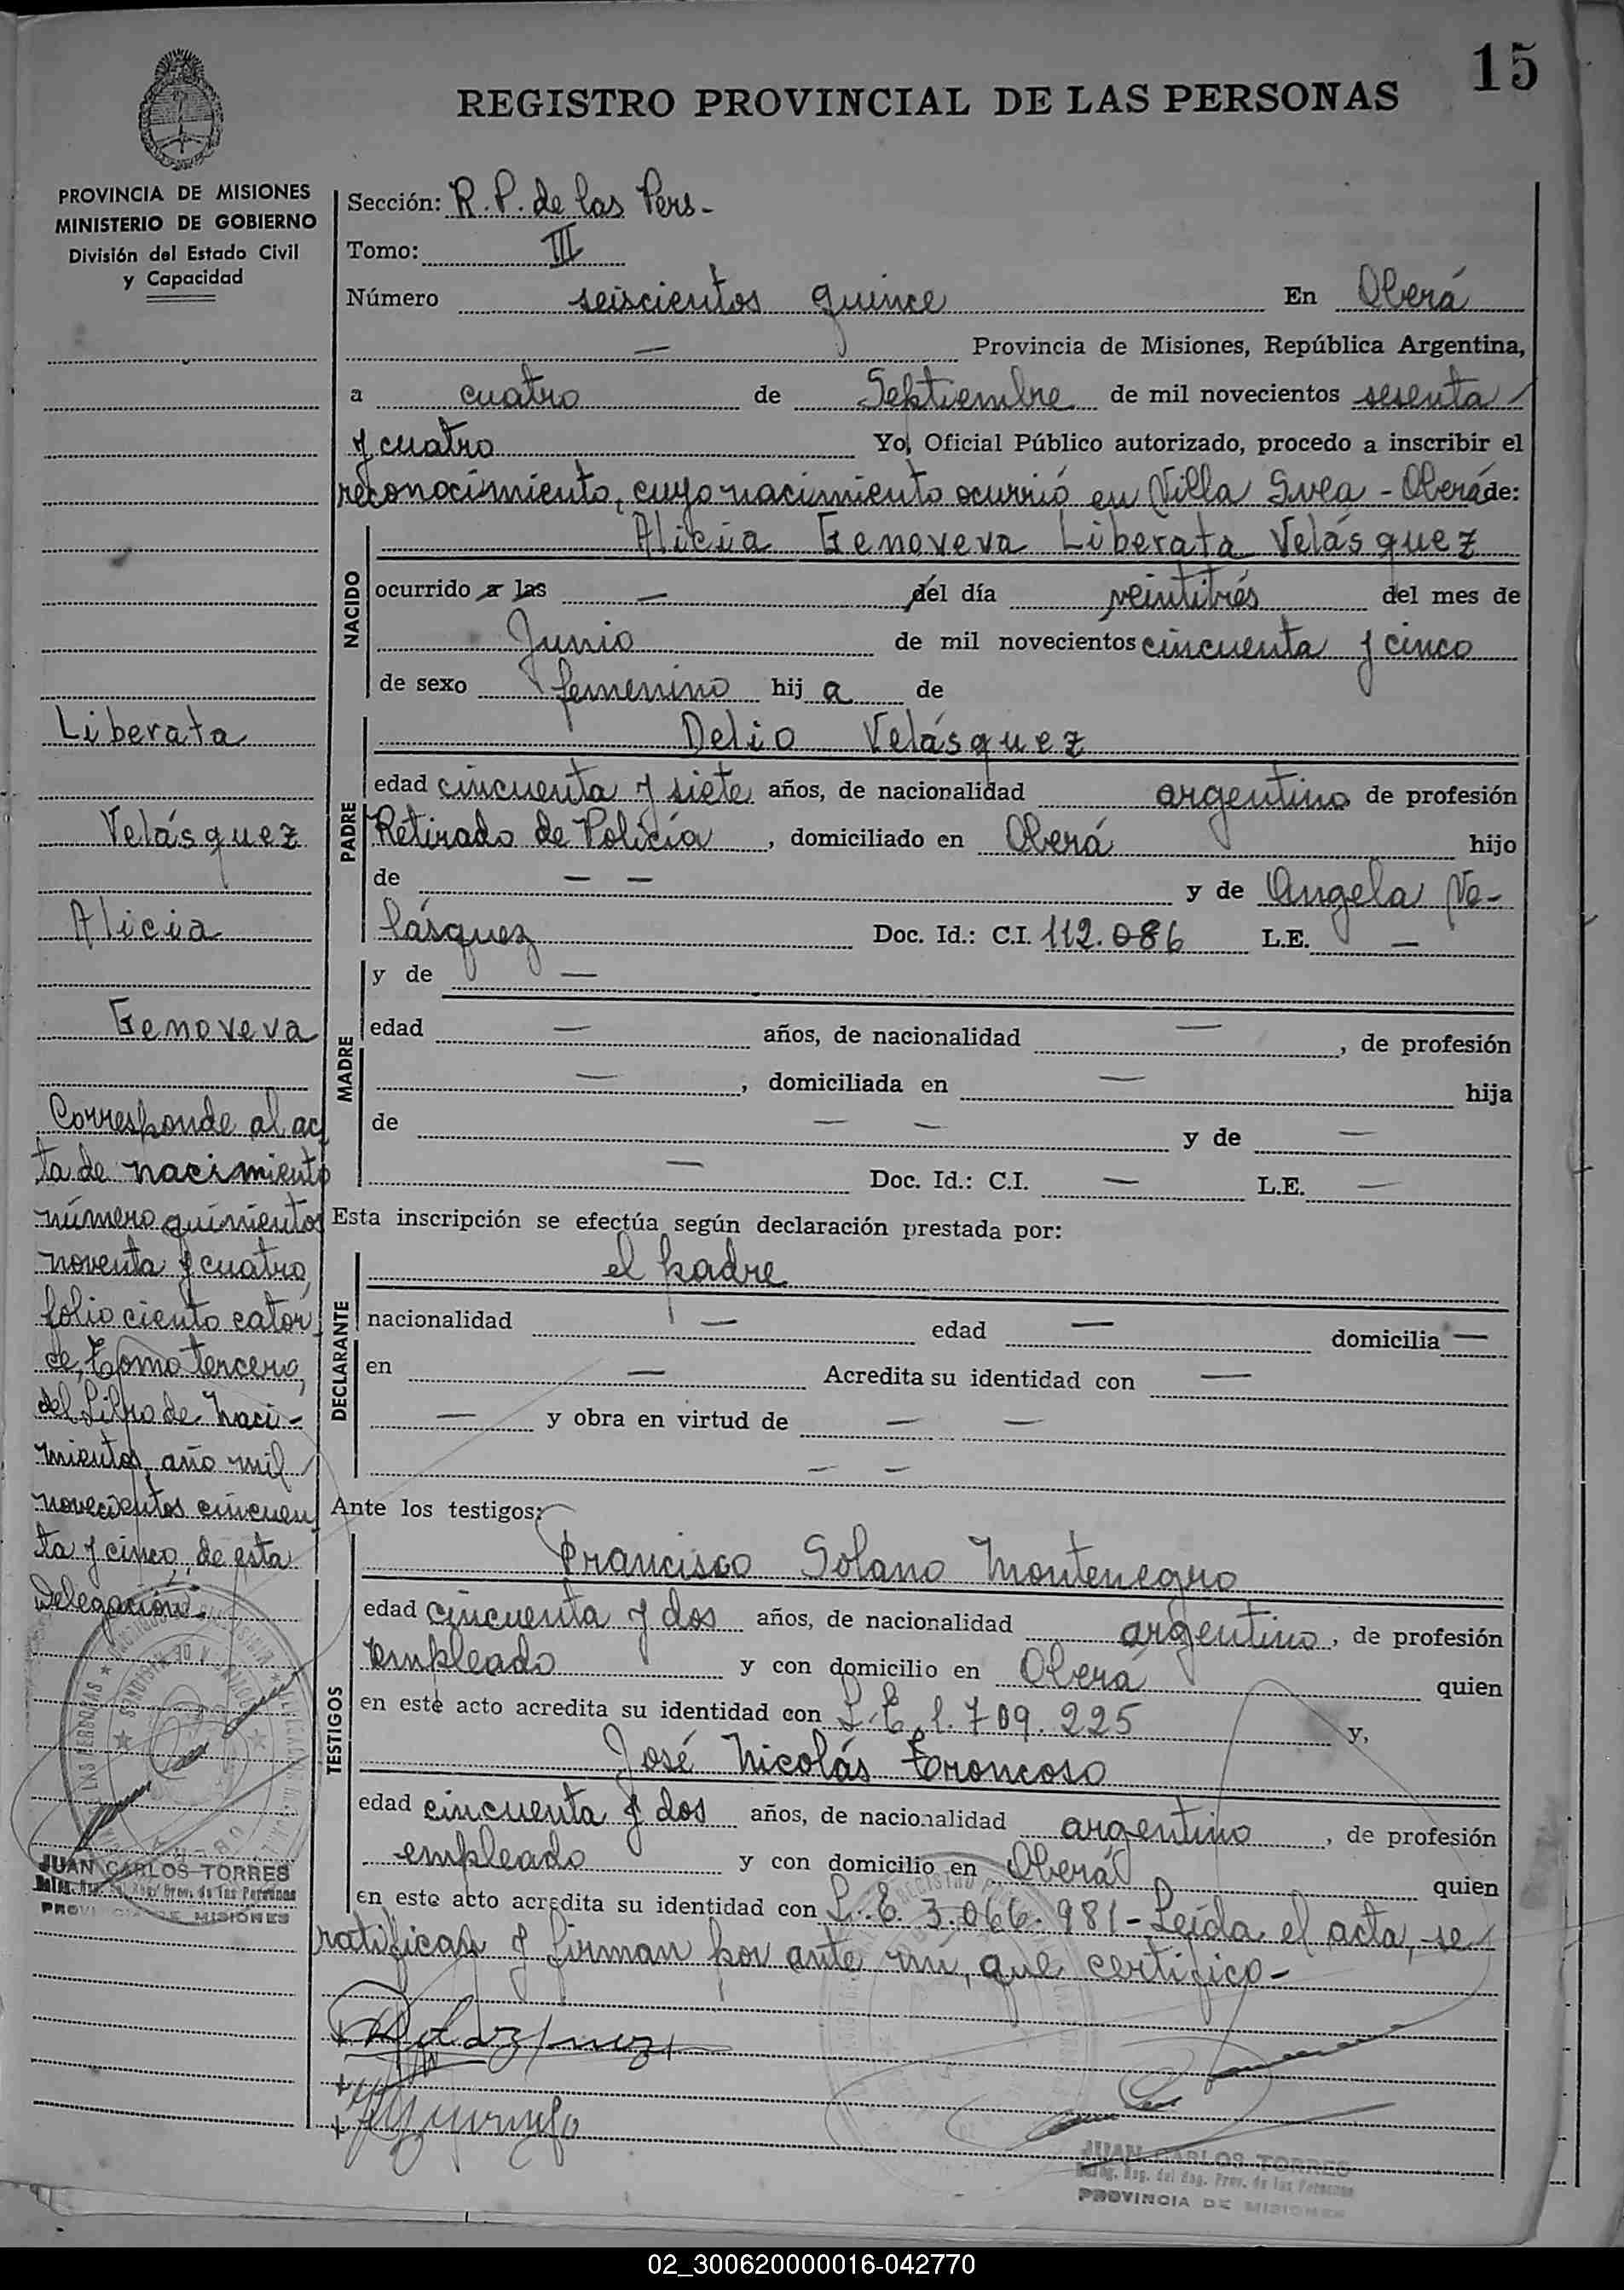 15
REGISTRO PROVINCIAL DE LAS PERSONAS
PROVINCIA DE MISIONES
MINISTERIO DE GOBIERNO
División del Estado Civil
y Capacidad
Sección: R. P. de las Pers-
Tomo: III
Número seiscientos quince En Oberá
— Provincia de Misiones, República Argentina,
a cuatro de Septiembre de mil novecientos sesenta
y cuatro Yo, Oficial Público autorizado, procedo a inscribir el
reconocimiento, cuyo nacimiento ocurrió en Villa Svea - Oberá de:
NACIDO
Alicia Genoveva Liberata Velásquez
ocurrido a las — del día veintitrés del mes de
Junio de mil novecientos cincuenta y cinco
de sexo femenino hij a de
PADRE
Delio Velásquez
edad cincuenta y siete años, de nacionalidad argentino de profesión
Retirado de Policía, domiciliado en Oberá hijo
de — — y de Angela Ve-
lásquez Doc. Id.: C.I. 112.086 L.E. —
MADRE
y de —
edad — años, de nacionalidad —, de profesión
—, domiciliada en — hija
de — — y de —
— Doc. Id.: C.I. — L.E. —
Esta inscripción se efectúa según declaración prestada por:
DECLARANTE
el padre
nacionalidad — edad — domicilia —
en — Acredita su identidad con —
— y obra en virtud de — —
— —
Ante los testigos:
TESTIGOS
Francisco Solano Montenegro
edad cincuenta y dos años, de nacionalidad argentino, de profesión
empleado y con domicilio en Oberá quien
en este acto acredita su identidad con L.E. 1.709.225 y,
José Nicolás Troncoso
edad cincuenta y dos años, de nacionalidad argentino, de profesión
empleado y con domicilio en Oberá quien
en este acto acredita su identidad con L.E. 3.066.981 - Leída el acta, se
ratifican y firman por ante mí, que certifico-
Liberata
Velásquez
Alicia
Genoveva
Corresponde al ac
ta de nacimiento
número quinientos
noventa y cuatro,
folio ciento cator
ce, Tomo tercero,
del Libro de Naci-
mientos, año mil
novecientos cincuen
ta y cinco, de esta
Delegación.-
JUAN CARLOS TORRES
Prov. de las Personas
PROVINCIA DE MISIONES
JUAN CARLOS TORRES
Deleg. Reg. del Reg. Prov. de las Personas
PROVINCIA DE MISIONES
02_300620000016-042770